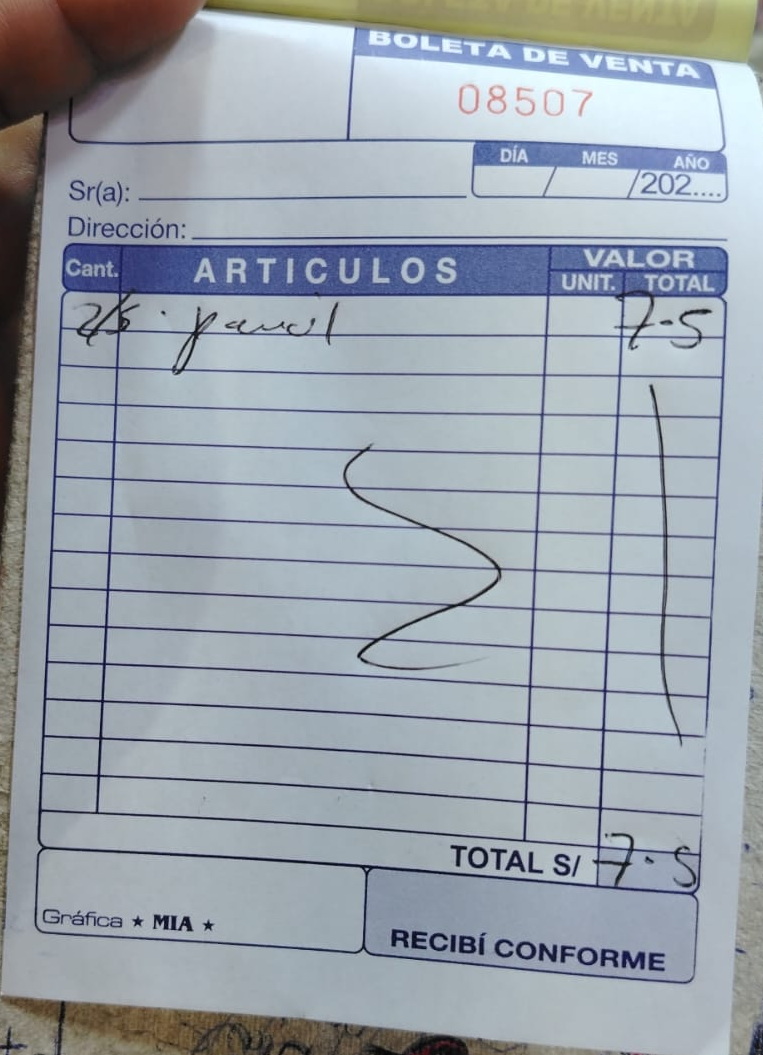 BOLETA DE VENTA
08507
DÍA MES AÑO
/ /202....
Sr(a):
Dirección:
Cant. ARTICULOS VALOR
UNIT. TOTAL
7.5
TOTAL S/ 7.5
Gráfica ★ MIA ★
RECIBÍ CONFORME